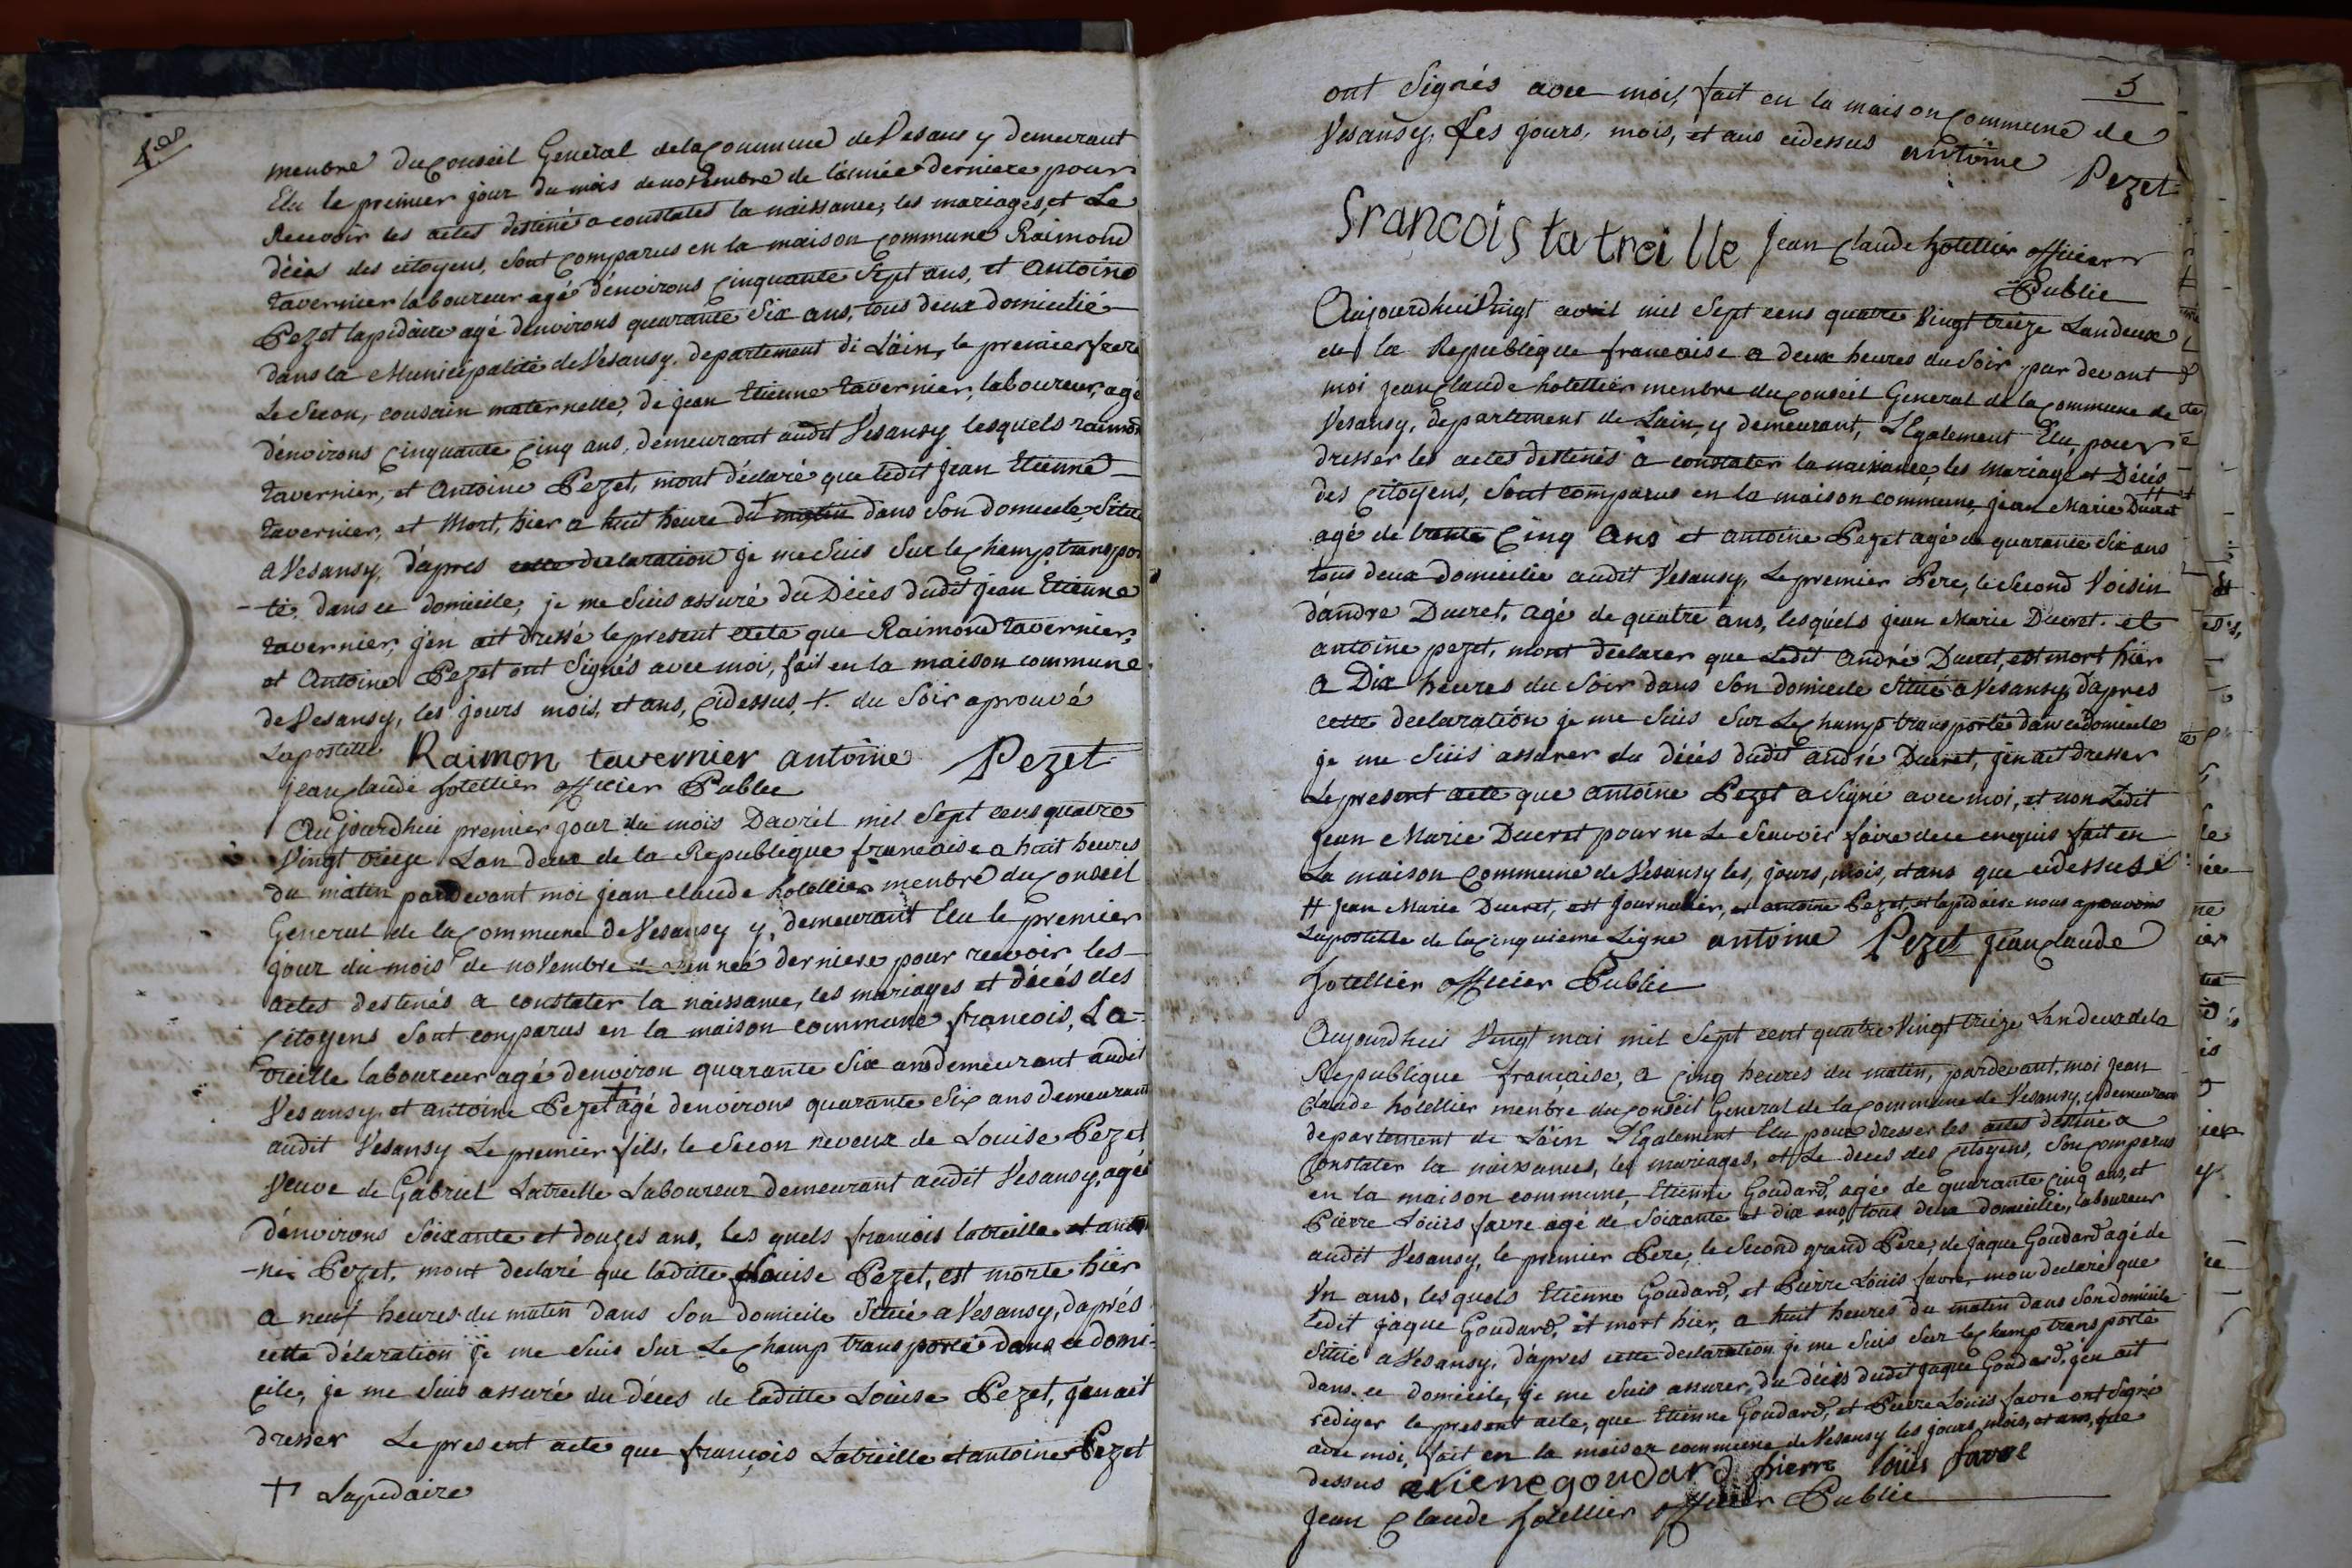 menbre du Conseil General de la Commune de Vesansy demeurant
Elu le premier jour du mois de novembre de lánnée derniere pour
Recevoir les actes destiné a constater la naissance, les mariages, et Le
décés des citoyens, sont Comparus en la maison Commune Raimond
tavernier laboureur agé dénvirons Cinquante Sept ans, et Antoine
Pezet lapidaire agé denvirons quarante Six ans, tous deux domicilié
dans la Municipalité de Vesansy, departement di Láin, le premier frere
Le Secon, cousin maternelle, de jean Etienne tavernier, laboureur, agé
dénvirons Cinquante Cinq ans, demeurant audit Vesansy lesquels raimon
tavernier, et Antoine Pezet, mont déclaré que ledit jean Etienne
tavernier, et Mort, hier a huit heure du + matin dans Son domicile, Situé
a Vesansy, dápres cette declaration je me Suis Sur le Champ transpor
-té, dans ce domicile, je me Suis assuré du Décés dudit jean Etienne
tavernier, jén ait dressé le present acte que Raimond tavernier,
et Antoine Pezet ont Signés avec moi, fait en la maison commune
de Vesansy, les jours mois, et ans, Cidessus, +. du Soir aprouvé
Lapostille Raimon tavernier antoine Pezet
jean Claude hotellier officier Public
4.
Aujourdhui premier jour du mois Davril mil Sept cens quatre
Vingt treize Lan deux de la Republique francaise a huit heures
du matin pardevant moi jean claude hotellier menbre du Conseil
General de la Commune de Vesansy y, demeurant Elu le premier
jour du mois de novembre de lannee derniere pour recevoir les
actes destinés a constater la naissance, les mariages et décés des
Citoyens Sont comparus en la maison commune francois, La-
treille laboureur agé denviron quarante Six ans demeurant audit
Vesansy, et antoine Pezet + agé denvirons quarante Six ans demeurant
audit Vesansy Le premier fils, le Secon neveux de Louise Pezet
Veuve de Gabriel Latreille Laboureur demeurant audit Vesansy, agés
dénvirons Soixante et douzes ans, les quels francois latreille et antoi
-ne Pezet, mont declaré que laditte Louise Pezet, est morte hier
a neuf heures du matin dans Son domicile Situé a Vesansy, dáprés
cette déclaration je me Suis Sur Le Champ transporté dans ce domi-
cile, je me Suis assuré du déces de laditte Louise Pezet, jén ait
dresser Le present acte que françois Latreille et antoine Pezet
+ Lapidaire
5
ont Signés avec moi, fait en la maison Commune de
Vesansy, Les jours, mois, et ans cidessus antoine Pezet
francois la treille Jean Claude hotellier officier
Public
Aujourdhui Vingt avril mil Sept cens quatre Vingt treize Landeux
de la Republique francaise a deux heures du Soir par devant
moi jean Claude hotellier menbre du Conseil General de la Commune de
Vesansy, departement de Lain, y demeurant, Légalement Elu, pour
dresser les actes destinés à constater la naissance, les Mariage et Décés
des Citoyens, Sont comparus en la maison commune, jean Marie Ducret ++
agé de trente Cinq Ans et antoine Pezet agé de quarante Six ans
tous deux domicilie audit Vesansy, Le premier Pere, le Second Voisin
dándre Ducret, agé de quatre ans, lesquels jean Marie Ducret. et
antoine pezet, mont declarer que Ledit André Ducret, est mort hier
a Dix heures du Soir dans Son domicile Situé a Vesansy, dápres
cette declaration je me Suis Sur Le Champ transporté dans ce domicile
je me Suis assurer du décés dudit andré Ducret, jén ait dresser
Le present acte que antoine Pezet a Signé avec moi, et non Ledit
jean Marie Ducret pour ne Le Scavoir faire de ce enquis fait en
La maison Commune de Vesansy les, jours, mois, et ans que cidessus
++ jean Marie Ducret, est journalier, et antoine Pezet, et lapidaire nous aprouvons
Lapostille de la Cinquieme Ligne antoine Pezet jean Claude
hotellier officier Public
Aujourdhui Vingt mai mil Sept cent quatre Vingt treize Lan deux de la
Republique francaise, a Cinq heures du matin, pardevant, moi jean
Claude hotellier menbre du Conseil General de la Commune de Vesansy, y demeurant
departement de Láin Légalement Elu pour dresser les actes destiné a
Constater la naissances, les mariages, et Le deces des Citoyens, Son Comparus
en la maison commune, Etienne Goudard, agé de quarante Cinq ans, et
Pierre Louis favre agé de Soixante et dix ans, tous deux domicilie, laboureur
audit Vesansy, le premier Pere, le Second grand Pere, de Jaque Goudard agé de
Un ans, lesquels Etienne Goudard, et Pierre Louis favre, mon declaré que
ledit jaque Goudard, et mort hier, a huit heures du matin dans Son domicile
Situé a Vesansy, dápres cette declaration je me Suis Sur le Champ transporté
dans ce domicile, je me Suis assurer, du décés dudit jaque Goudard, jén ait
rediger le present acte, que Etienne Goudard, et Pierre Louis favre ont Signé
avec moi, fait en la maison commune de Vesansy les jours, mois, et ans, que
dessus etiene goudard pierre louis favre
Jean Claude hotellier officier Public